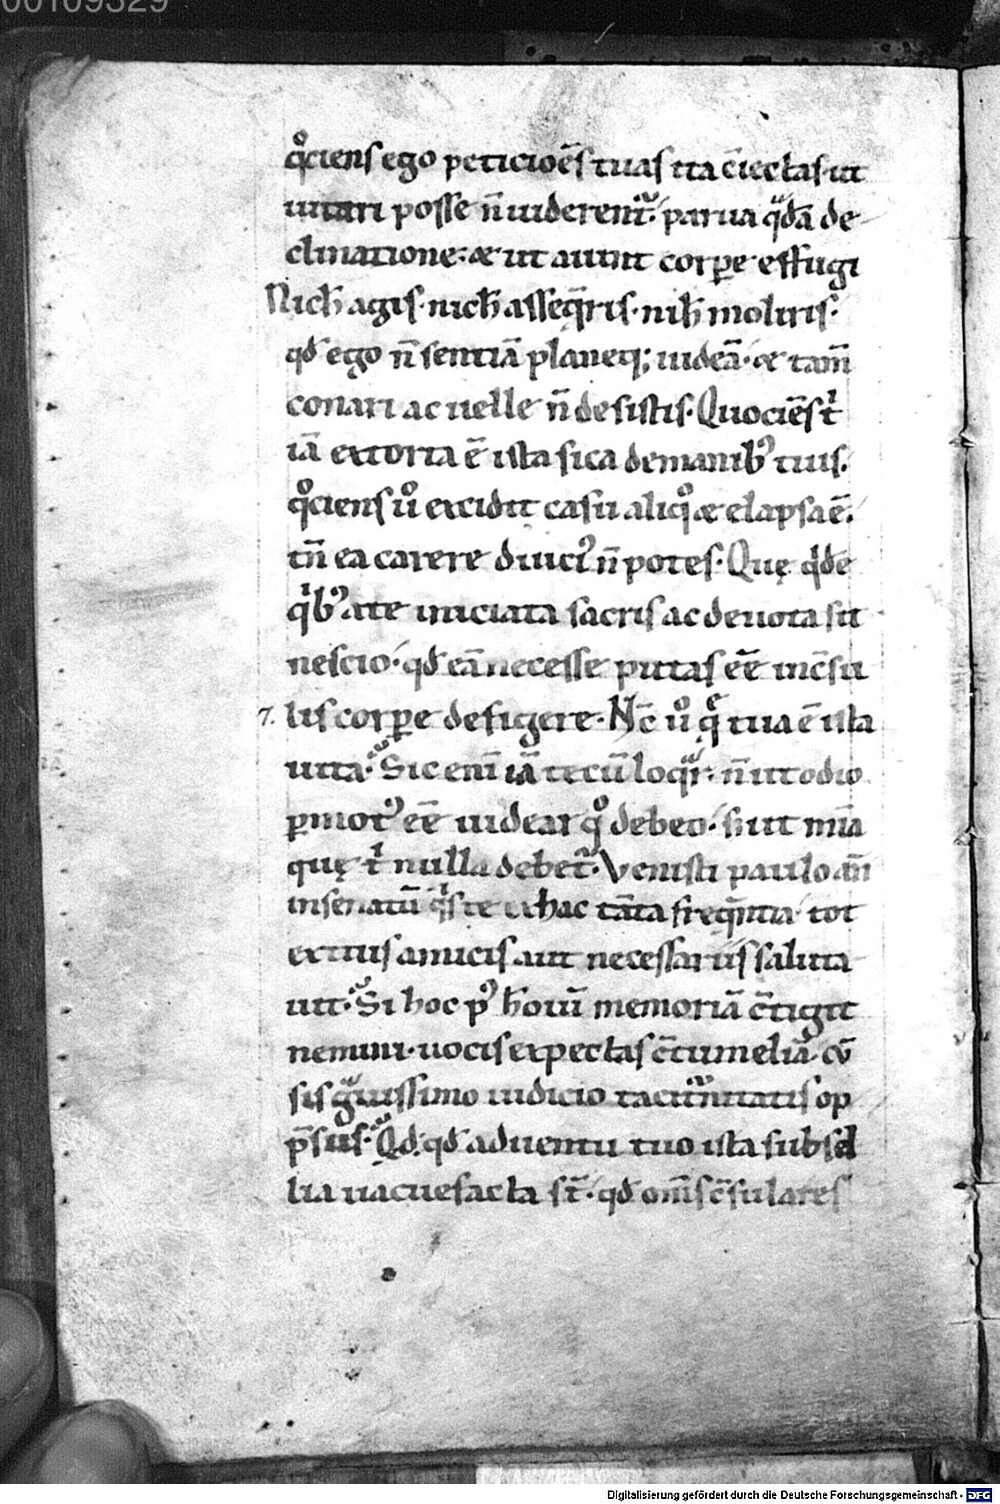 00109329
qͦciens ego peticiōes tuas ita c̄iectas ut
uitari posse n̄ uiderent᷑. parua qᷓdā de
clinatione. & ut aiunt corꝑe effugi
Nich̄ agis. nich̄ asseq̄ris. nih̄ moliris.
qd̄ ego n̄ sentiā planeq; uideā. & tam̄
conari ac uelle n̄ desistis. Quociēs tͥ
iā extorta ē ista sica demanibꝰ tuis.
qͦciens ū excidit casu aliqͦ & elapsa ē.
tn̄ ea carere diuciꝰ n̄ potes. Quę qͥdē
qͥbꝰ a te iniciata sacris ac deuota sit
nescio. qd̄ eā necesse putas eē inc̄su
7. lis corꝑe defigere. Nc̄ ūͦ qͣ tua ē ista
uita. Sic enī iā tecū loqᷓr. n̄ ut odio
ꝑmotꝰ eē uidear qͦ debeo. s; ut mīa
quę tͥ nulla debet᷑. Venisti paulo an̄
insenatū qͥs te ex hac tāta freq̄ntia. tot
ex tuis amicis aut necessariis saluta
uit. Si hoc pꝰ hōiū memoriā c̄tigit
nemini. uocis expectas c̄tumeliā. cū
sis gᷓuissimo iudicio taciturnitatis op
p̄sus. Qd̄. qd̄ aduentu tuo ista subsel
lia uacuefacta st̄. qd̄ om̄s c̄sulares
Digitalisierung gefördert durch die Deutsche Forschungsgemeinschaft - DFG